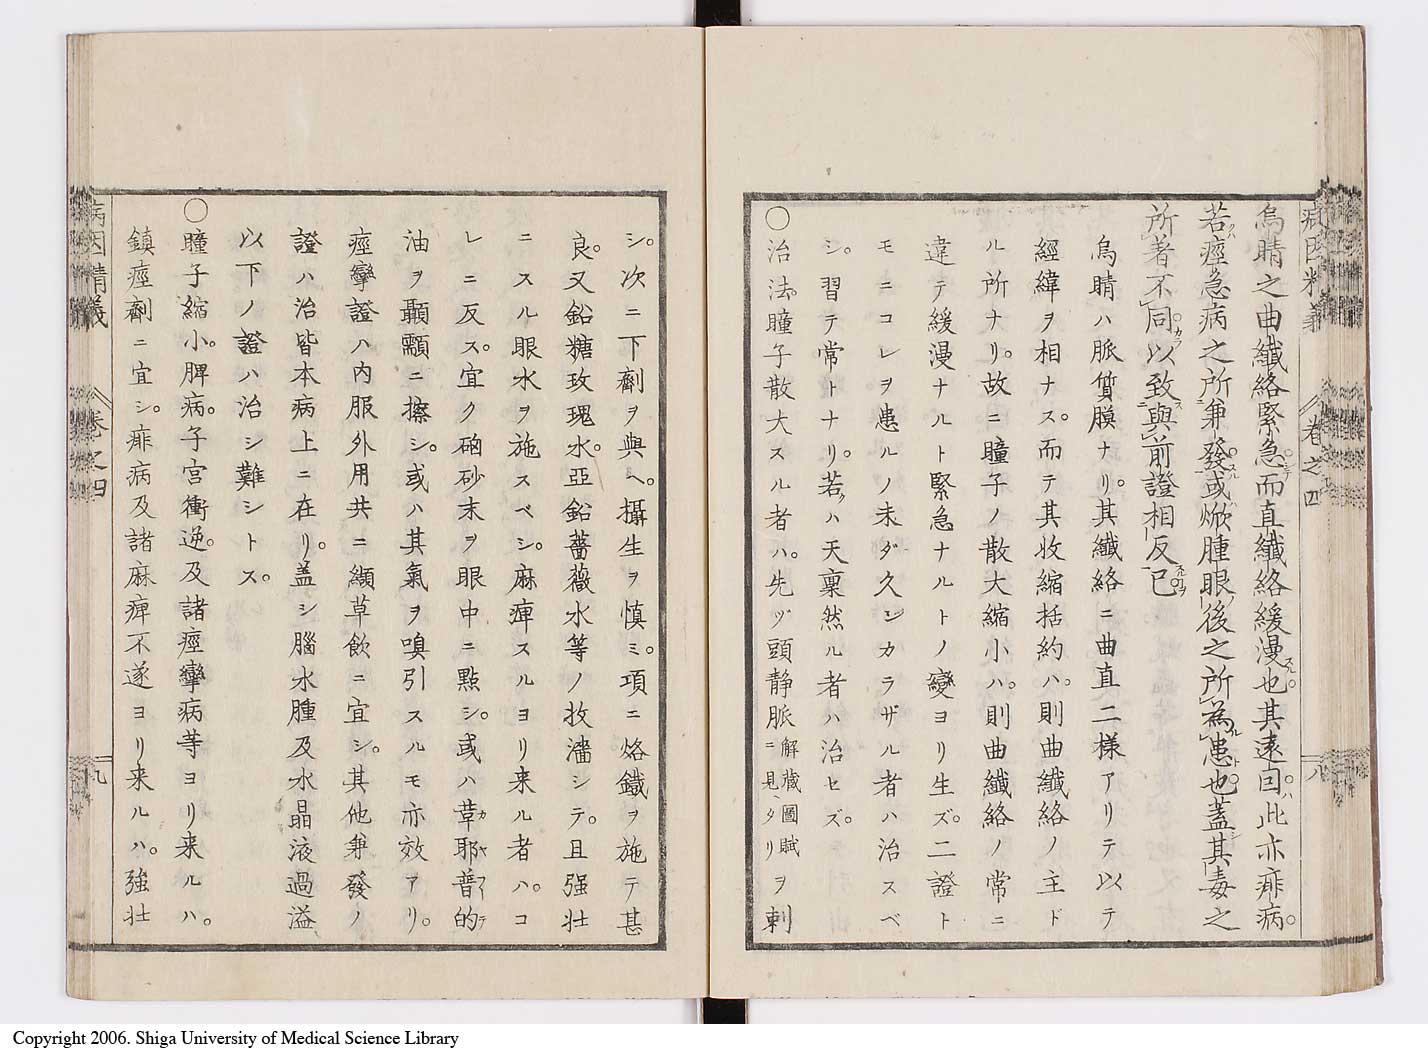 病因精義 巻之四 八
烏睛之曲纎絡緊急而直纎絡緩漫也其遠因此亦痱病。
若痙急病之所兼發或焮腫眼後之所為患也蓋其毒之
所著不同以致與前證相反已
烏睛ハ脈質膜ナリ。其纎絡ニ曲直二様アリテ以テ
經緯ヲ相ナス。而テ其收縮括約ハ。則曲纎絡ノ主ド
ル所ナリ。故ニ瞳子ノ散大縮小ハ。則曲纎絡ノ常ニ
違テ緩漫ナルト緊急ナルトノ變ヨリ生ズ。二證ト
モニコレヲ患ルノ未ダ久シカラザル者ハ治スベ
シ。習テ常トナリ。若クハ天稟然ル者ハ治セズ。
〇治法瞳子散大スル者ハ。先ヅ頭静脈解藏圖賦ニ見タリヲ刺
シ。次ニ下劑ヲ與ヘ。攝生ヲ慎ミ。項ニ烙鐵ヲ施テ甚
良。又鉛糖玫瑰水。亞鉛薔薇水等ノ收濇シテ。且强壯
ニスル眼水ヲ施スベシ。麻痺スルヨリ来ル者ハ。コ
レニ反ス。宜ク硇砂末ヲ眼中ニ點シ。或ハ葷耶普的
油ヲ顳顬ニ擦シ。或ハ其氣ヲ嗅引スルモ亦效アリ。
痙攣證ハ内服外用共ニ纈草飲ニ宜シ。其他兼發ノ
證ハ治皆本病上ニ在リ。盖シ腦水腫及水晶液過溢
以下ノ證ハ治シ難シトス。
〇瞳子縮小。脾病。子宮衝逆。及諸痙攣病等ヨリ来ルハ。
鎮痙劑ニ宜シ。痱病及諸麻痺不遂ヨリ来ルハ。強壯
病因精義 巻之四 九
Copyright 2006. Shiga University of Medical Science Library